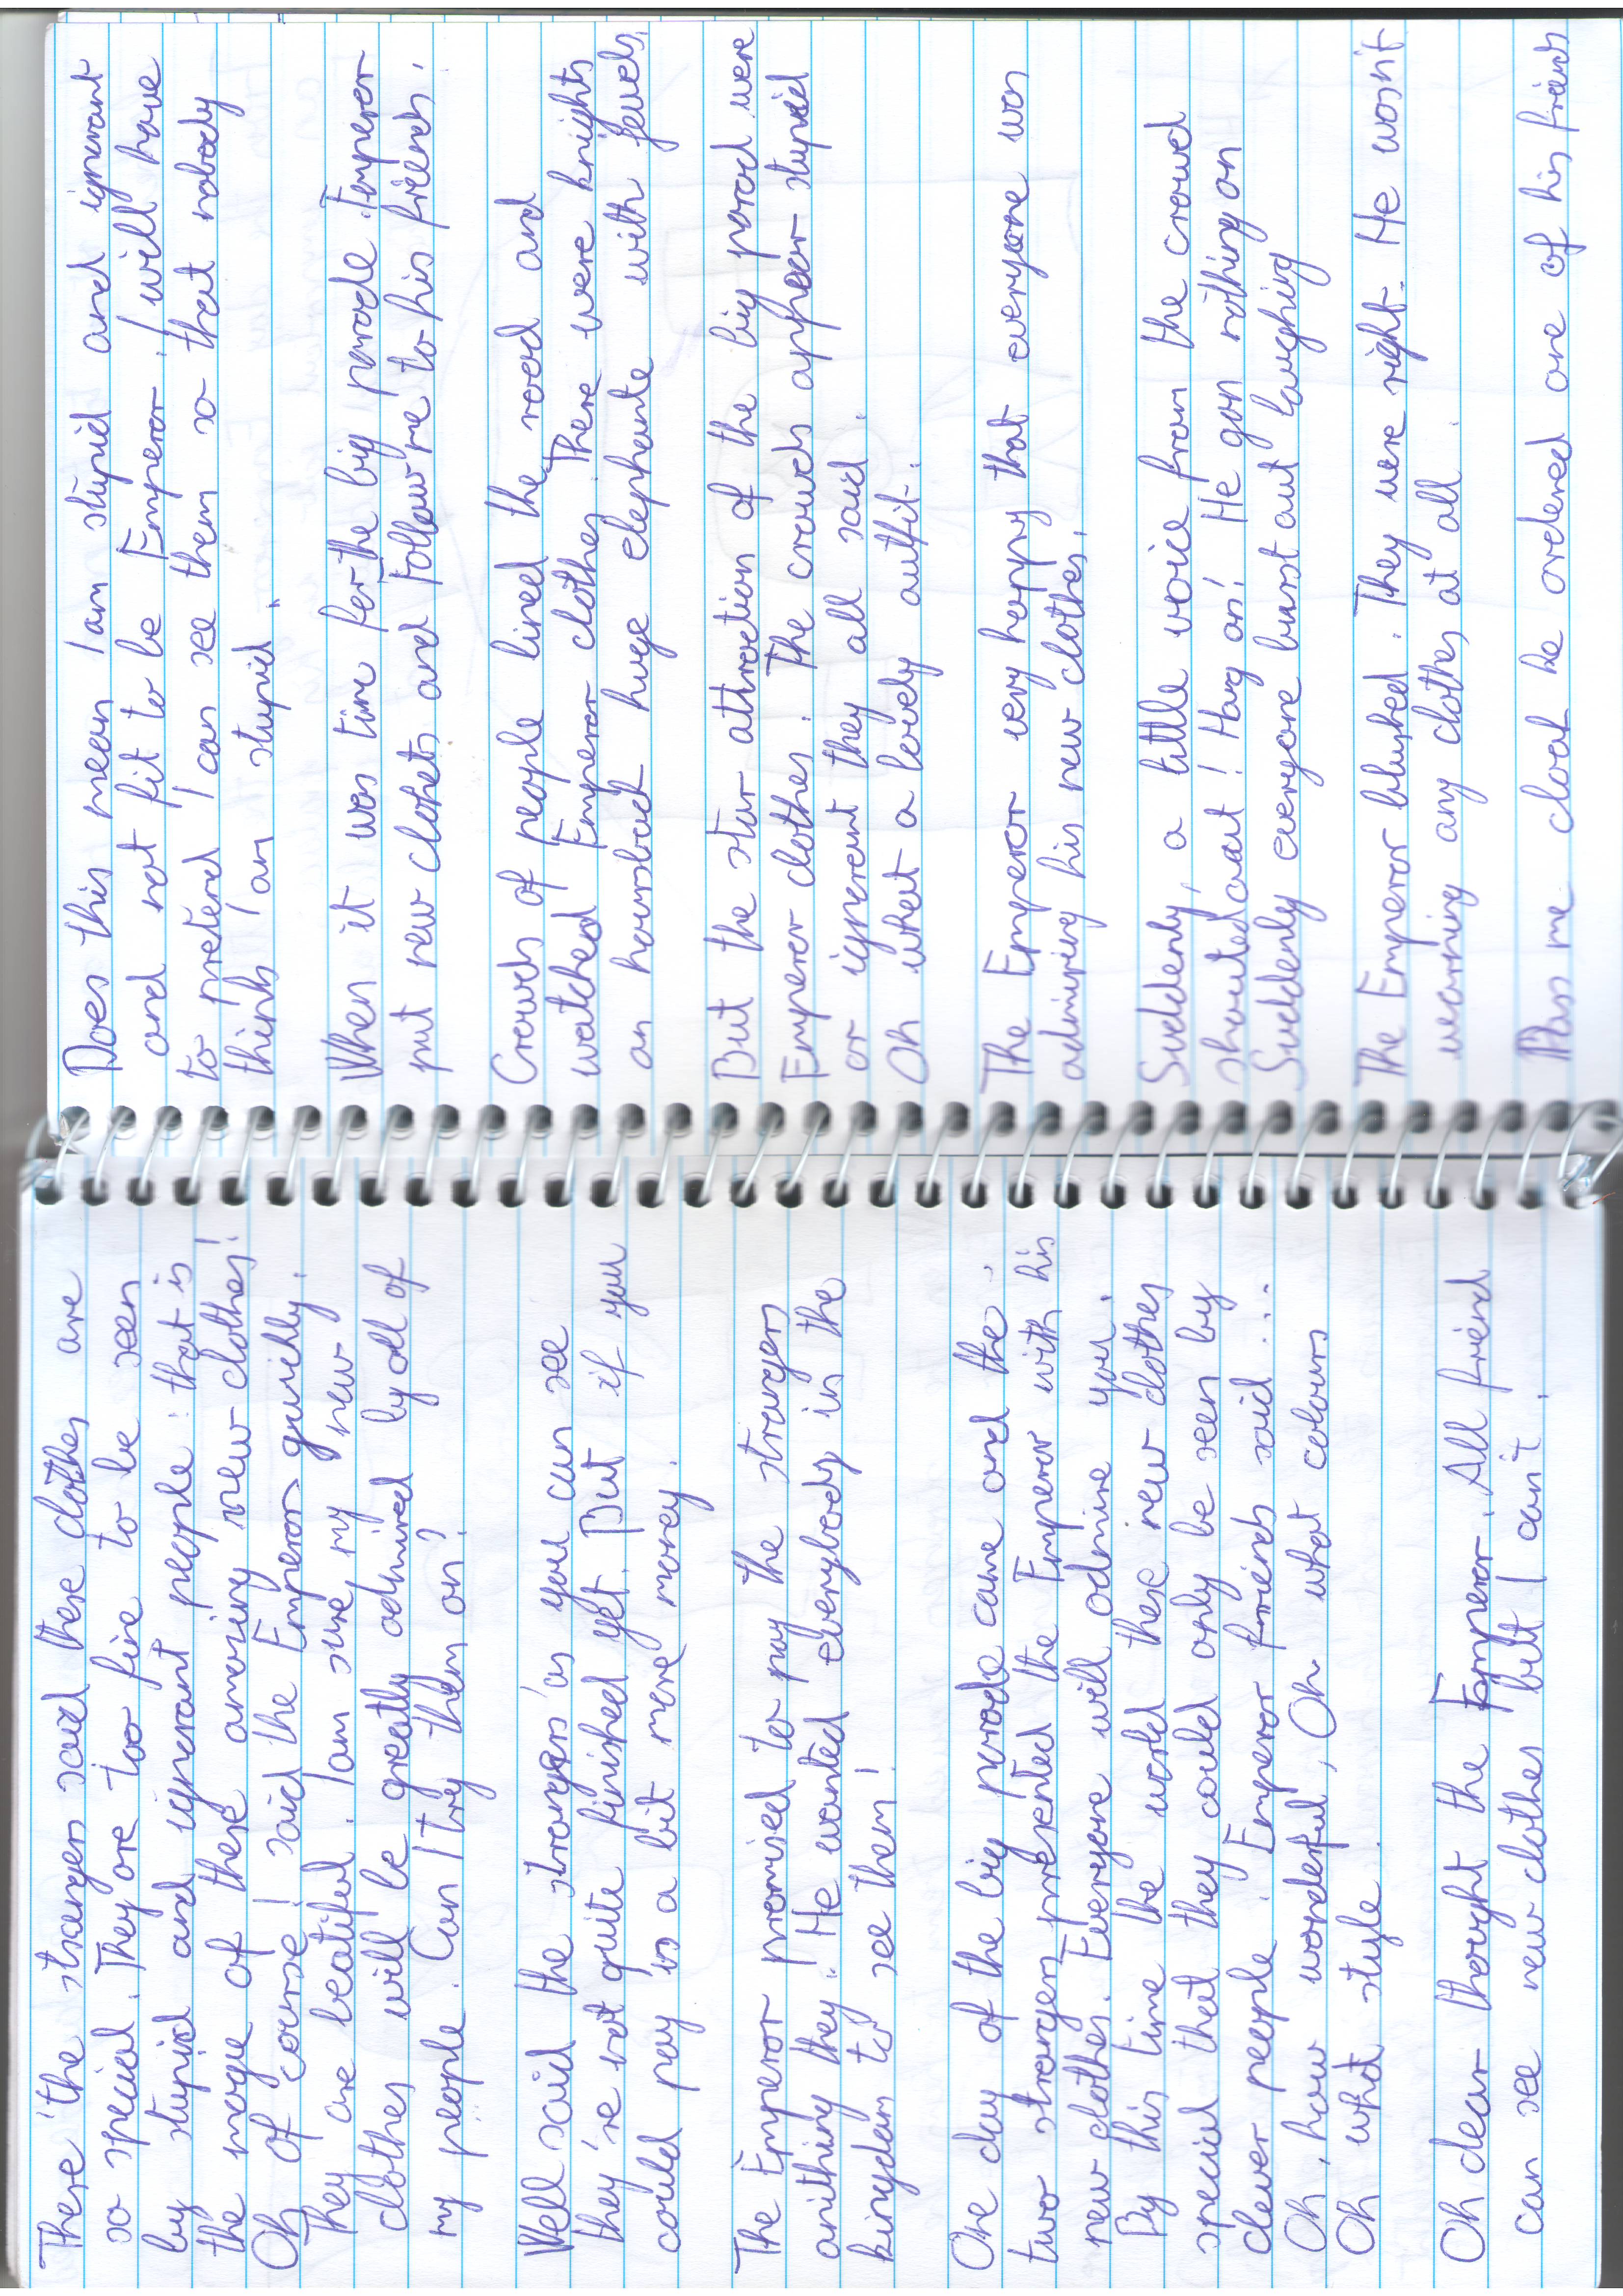 There 'the strangers said these clothes are
so special. They are too fine to be seen
by stupid and ignorant people: that is
the mage of these amazing new clothes!
Oh of course! said the Emperor quickly.
They are beatiful. I am sure my new
clothes will be greatly admired by all of
my people. Can I try them on?
Well said the strangers 'as you can see
they're not quite finished yet. But if you
could pay us a bit more money.
The Emperor promised to pay the strangers
anithing they. He wanted everybody in the
kingdom to see them!
One day of the big parade came and the
two strangers presented the Emperor with his
new clothes. Everyone will admire you.
By this time the world these new clothes
special that they could only be seen by
clever people. Emperor friends said...
Oh, how wonderful, Oh what colours
Oh what style.
Oh dear thought the Emperor. All friend
can see new clothes but I can't.
Does this mean I am stupid and ignorant
and not fit to be Emperor. I will have
to pretend I can see them so that nobody
thinks I am stupid.
When it was time for the big parade Emperor
put new clohets and follow me to his friends.
Crowds of people lined the road and
watched Emperor clothes. There were knights
on horsback huge elephante with jewels.
But the star attraction of the big parad were
Emperor clothes. The crowds appear stupid
or ignorent they all said.
Oh what a lovely outfit.
The Emperor very happy that everyone was
admiring his new clothes.
Suddenly, a little voice from the crowd
shouted out! Hang on! He gon nothing on
Suddenly everyone burst out laughing
The Emperor blushed. They were right. He wasn't
wearning any clothes at all.
Pass me cloak he ordered one of his friends